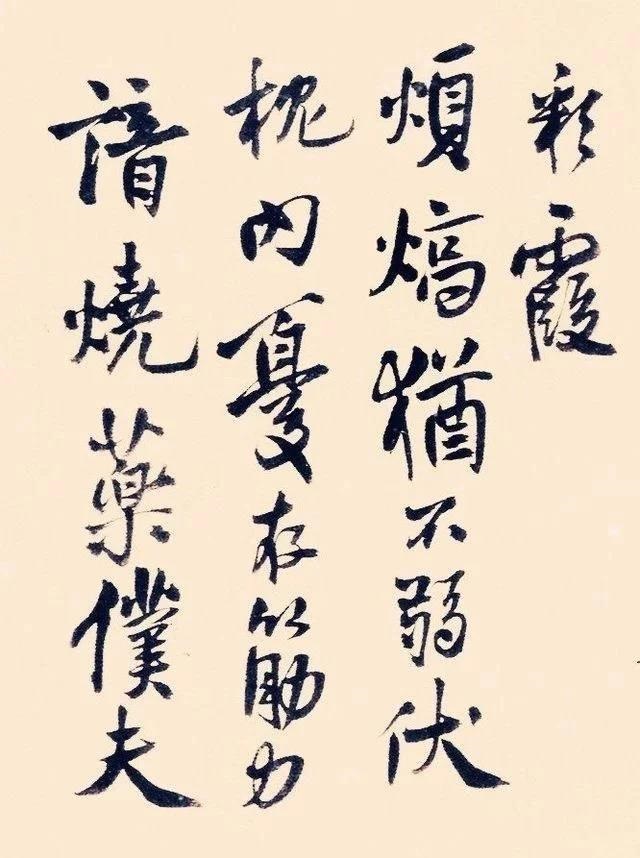 彩霞
煩熇猶不弱伏
枕內憂存筋力
諳燒藥僕夫